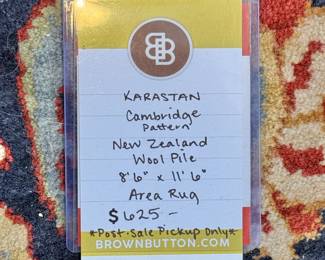 BB
KARASTAN
Cambridge
Pattern
New Zealand
Wool Pile
8'6" x 11'6"
Area Rug
$625-
*Post-Sale Pickup Only*
BROWNBUTTON.COM